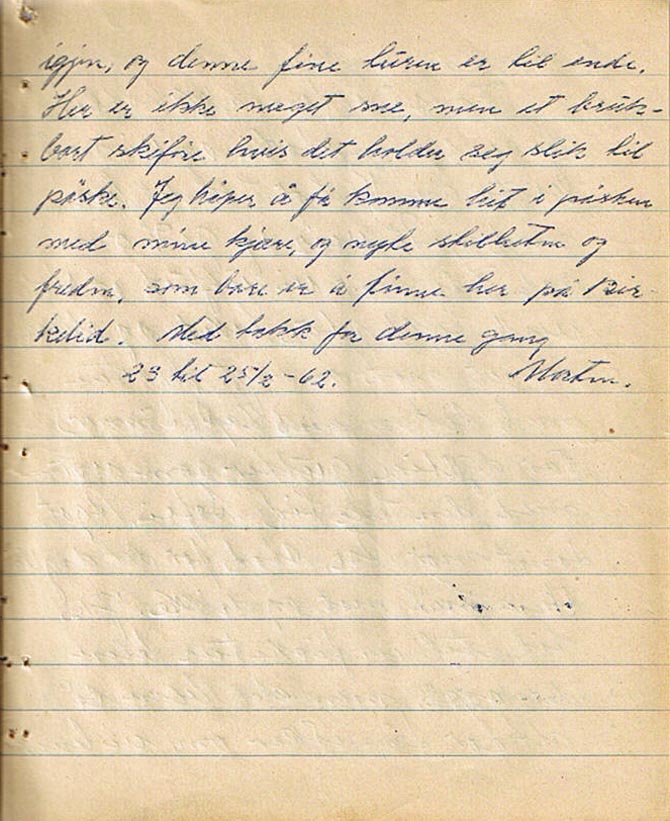 igjen, og denne fine turen er til ende.
Her er ikke meget snø, men et bruk-
bart skiføre hvis det holder seg slik til
påske. Jeg håper å få komme hit i påsken
med mine kjære, og nyte stillheten og
freden, som bare er å finne her på Bir-
kelid. Med takk for denne gang
23 til 25/2-62. Morten.